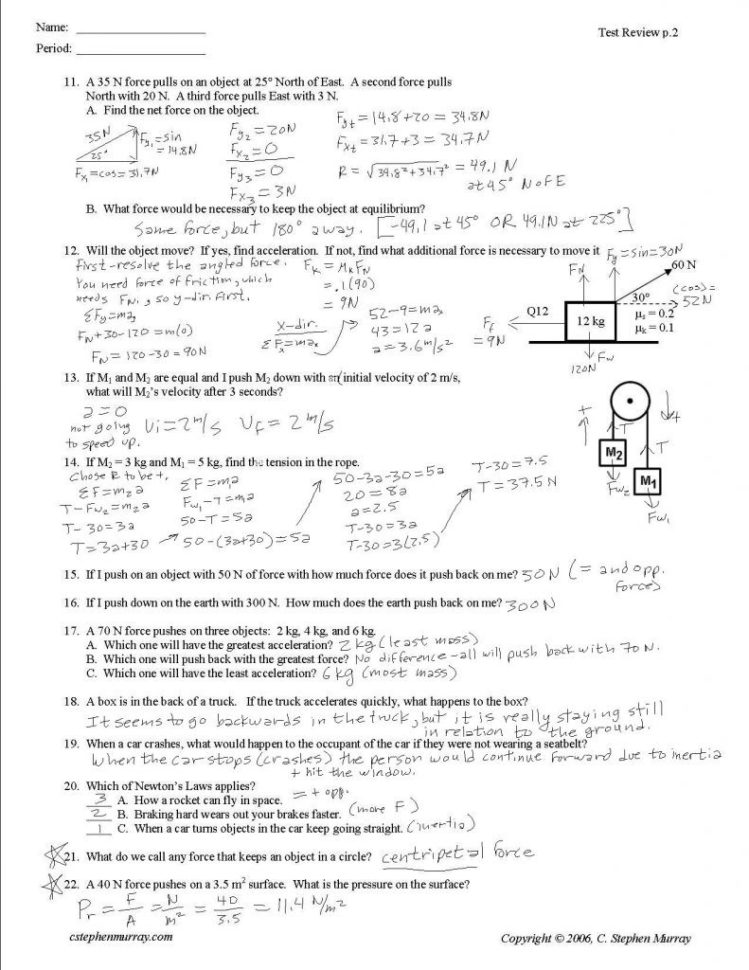 Name: ____________________
Test Review p.2
Period: ____________________
11. A 35 N force pulls on an object at 25° North of East. A second force pulls
North with 20 N. A third force pulls East with 3 N.
A. Find the net force on the object.
35N
25°
Fy₁ = sin
= 14.8N
Fx₁ = cos = 31.7N
Fy₂ = 20N
Fx₂ = 0
Fy₃ = 0
Fx₃ = 3N
Fyt = 14.8 + 20 = 34.8N
Fxt = 31.7 + 3 = 34.7N
R = √34.8² + 34.7² = 49.1 N
at 45° N of E
B. What force would be necessary to keep the object at equilibrium?
Same force, but 180° away. [-49.1 at 45° OR 49.1N at 225°]
12. Will the object move? If yes, find acceleration. If not, find what additional force is necessary to move it
First-resolve the angled force.
You need force of friction, which
needs FN, so y-dir. first.
ΣFy = may
FN + 30 - 120 = m(0)
FN = 120 - 30 = 90N
FK = μKFN
= .1(90)
= 9N
x-dir.
ΣFx = max
52 - 9 = max
43 = 12a
a = 3.6 m/s²
Fy = sin = 30N
FN
60 N
(cos) =
52N
30°
Q12
12 kg
μs = 0.2
μk = 0.1
Ff
= 9N
Fw
120N
13. If M₁ and M₂ are equal and I push M₂ down with an initial velocity of 2 m/s,
what will M₂'s velocity after 3 seconds?
a = 0
not going
to speed up.
Vi = 2 m/s Vf = 2 m/s
14. If M₂ = 3 kg and M₁ = 5 kg, find the tension in the rope.
Chose R to be +.
ΣF = m₂a
T - Fw₂ = m₂a
T - 30 = 3a
T = 3a + 30
ΣF = ma
Fw₁ - T = m₁a
50 - T = 5a
50 - (3a + 30) = 5a
50 - 3a - 30 = 5a
20 = 8a
a = 2.5
T - 30 = 3a
T - 30 = 3(2.5)
T - 30 = 7.5
T = 37.5 N
+
+
T
T
M₂
M₁
Fw₂
Fw₁
15. If I push on an object with 50 N of force with how much force does it push back on me? 50N (= and opp.
forces)
16. If I push down on the earth with 300 N. How much does the earth push back on me? 300N
17. A 70 N force pushes on three objects: 2 kg, 4 kg, and 6 kg.
A. Which one will have the greatest acceleration? 2 kg (least mass)
B. Which one will push back with the greatest force? No difference - all will push back with 70 N.
C. Which one will have the least acceleration? 6 kg (most mass)
18. A box is in the back of a truck. If the truck accelerates quickly, what happens to the box?
It seems to go backwards in the truck, but it is really staying still
in relation to the ground.
19. When a car crashes, what would happen to the occupant of the car if they were not wearing a seatbelt?
When the car stops (crashes) the person would continue forward due to inertia
+ hit the window.
20. Which of Newton's Laws applies?
3 A. How a rocket can fly in space. = + opp.
2 B. Braking hard wears out your brakes faster. (more F)
1 C. When a car turns objects in the car keep going straight. (inertia)
21. What do we call any force that keeps an object in a circle? centripetal force
22. A 40 N force pushes on a 3.5 m² surface. What is the pressure on the surface?
Pr = F/A = N/m² = 40/3.5 = 11.4 N/m²
cstephenmurray.com
Copyright © 2006, C. Stephen Murray